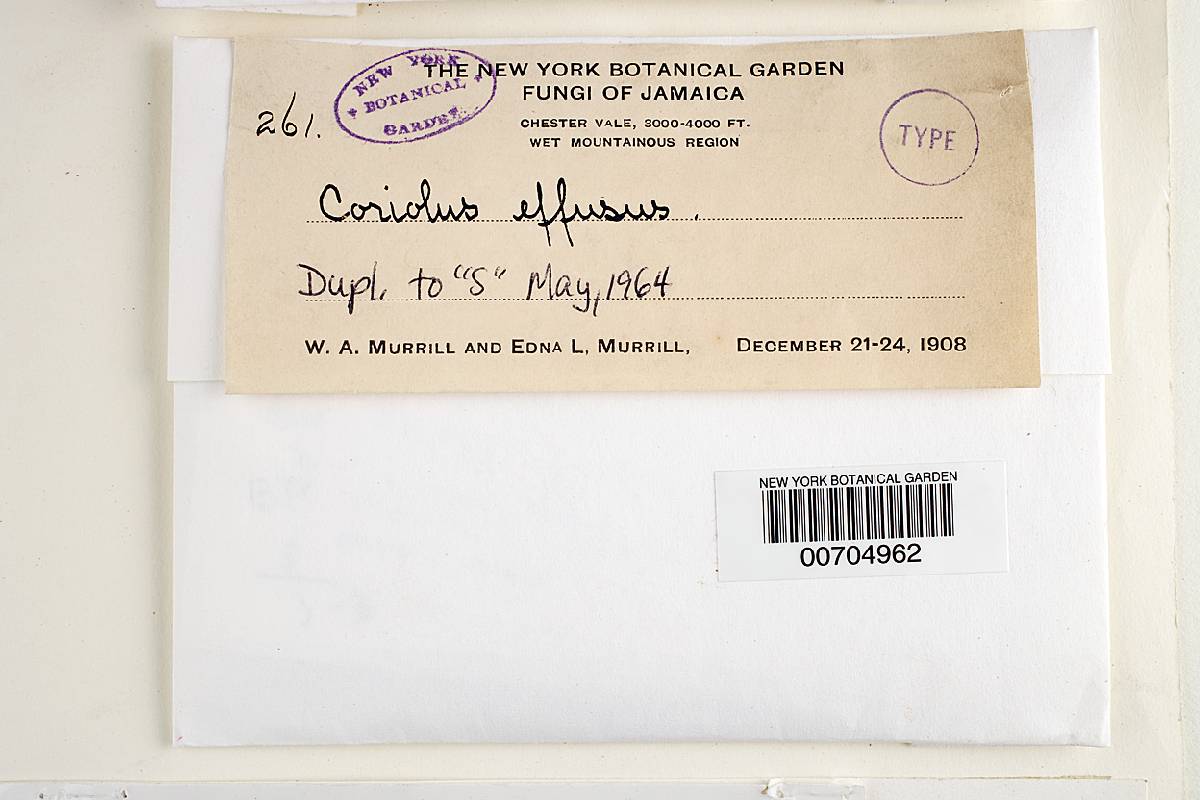 THE NEW YORK BOTANICAL GARDEN
NEW YORK
BOTANICAL
GARDEN
FUNGI OF JAMAICA
261.
CHESTER VALE, 3000-4000 FT.
WET MOUNTAINOUS REGION
TYPE
Coriolus effusus.
Dupl. to "S" May, 1964
W. A. MURRILL AND EDNA L. MURRILL, DECEMBER 21-24, 1908
NEW YORK BOTANICAL GARDEN
00704962